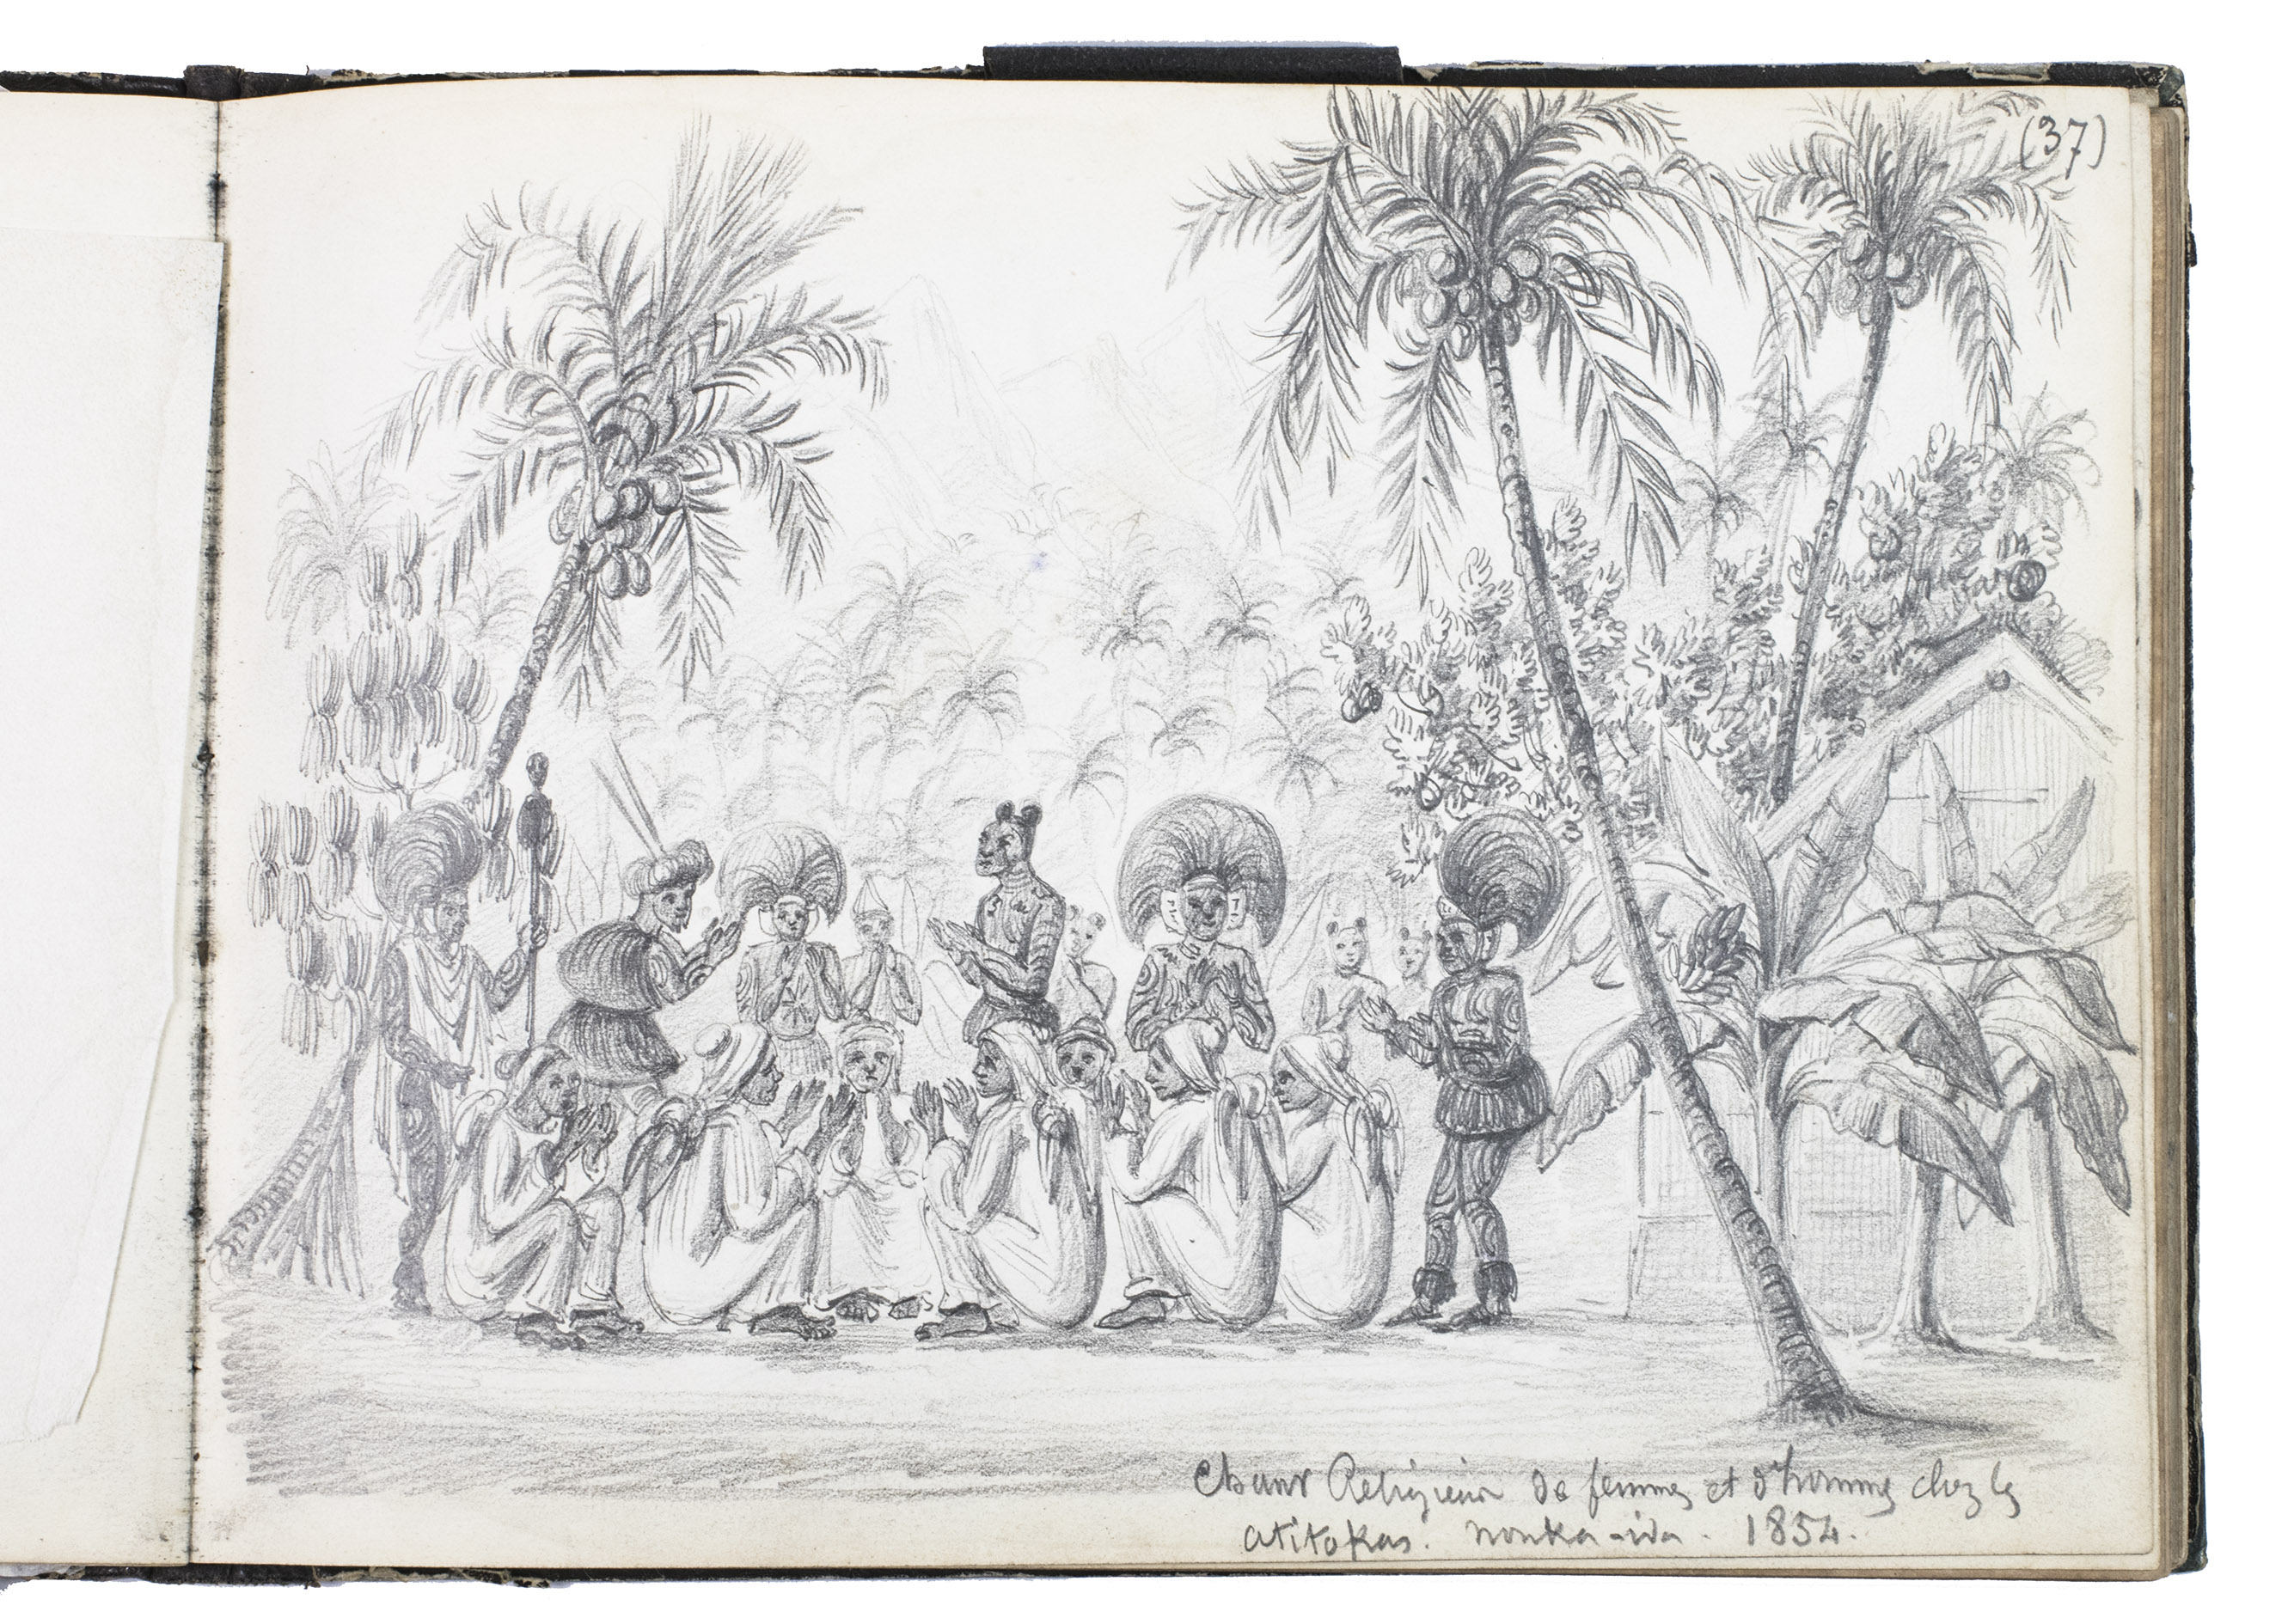 (37)
Chant Religieux de femmes et d'hommes chez les
atitokas. nouka-iva. 1854.